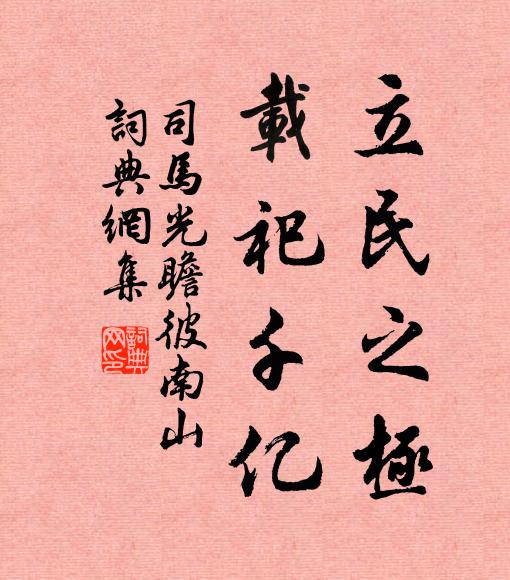 立民之極
載祀千亿
司馬光瞻彼南山
詞典網集
詞典網印